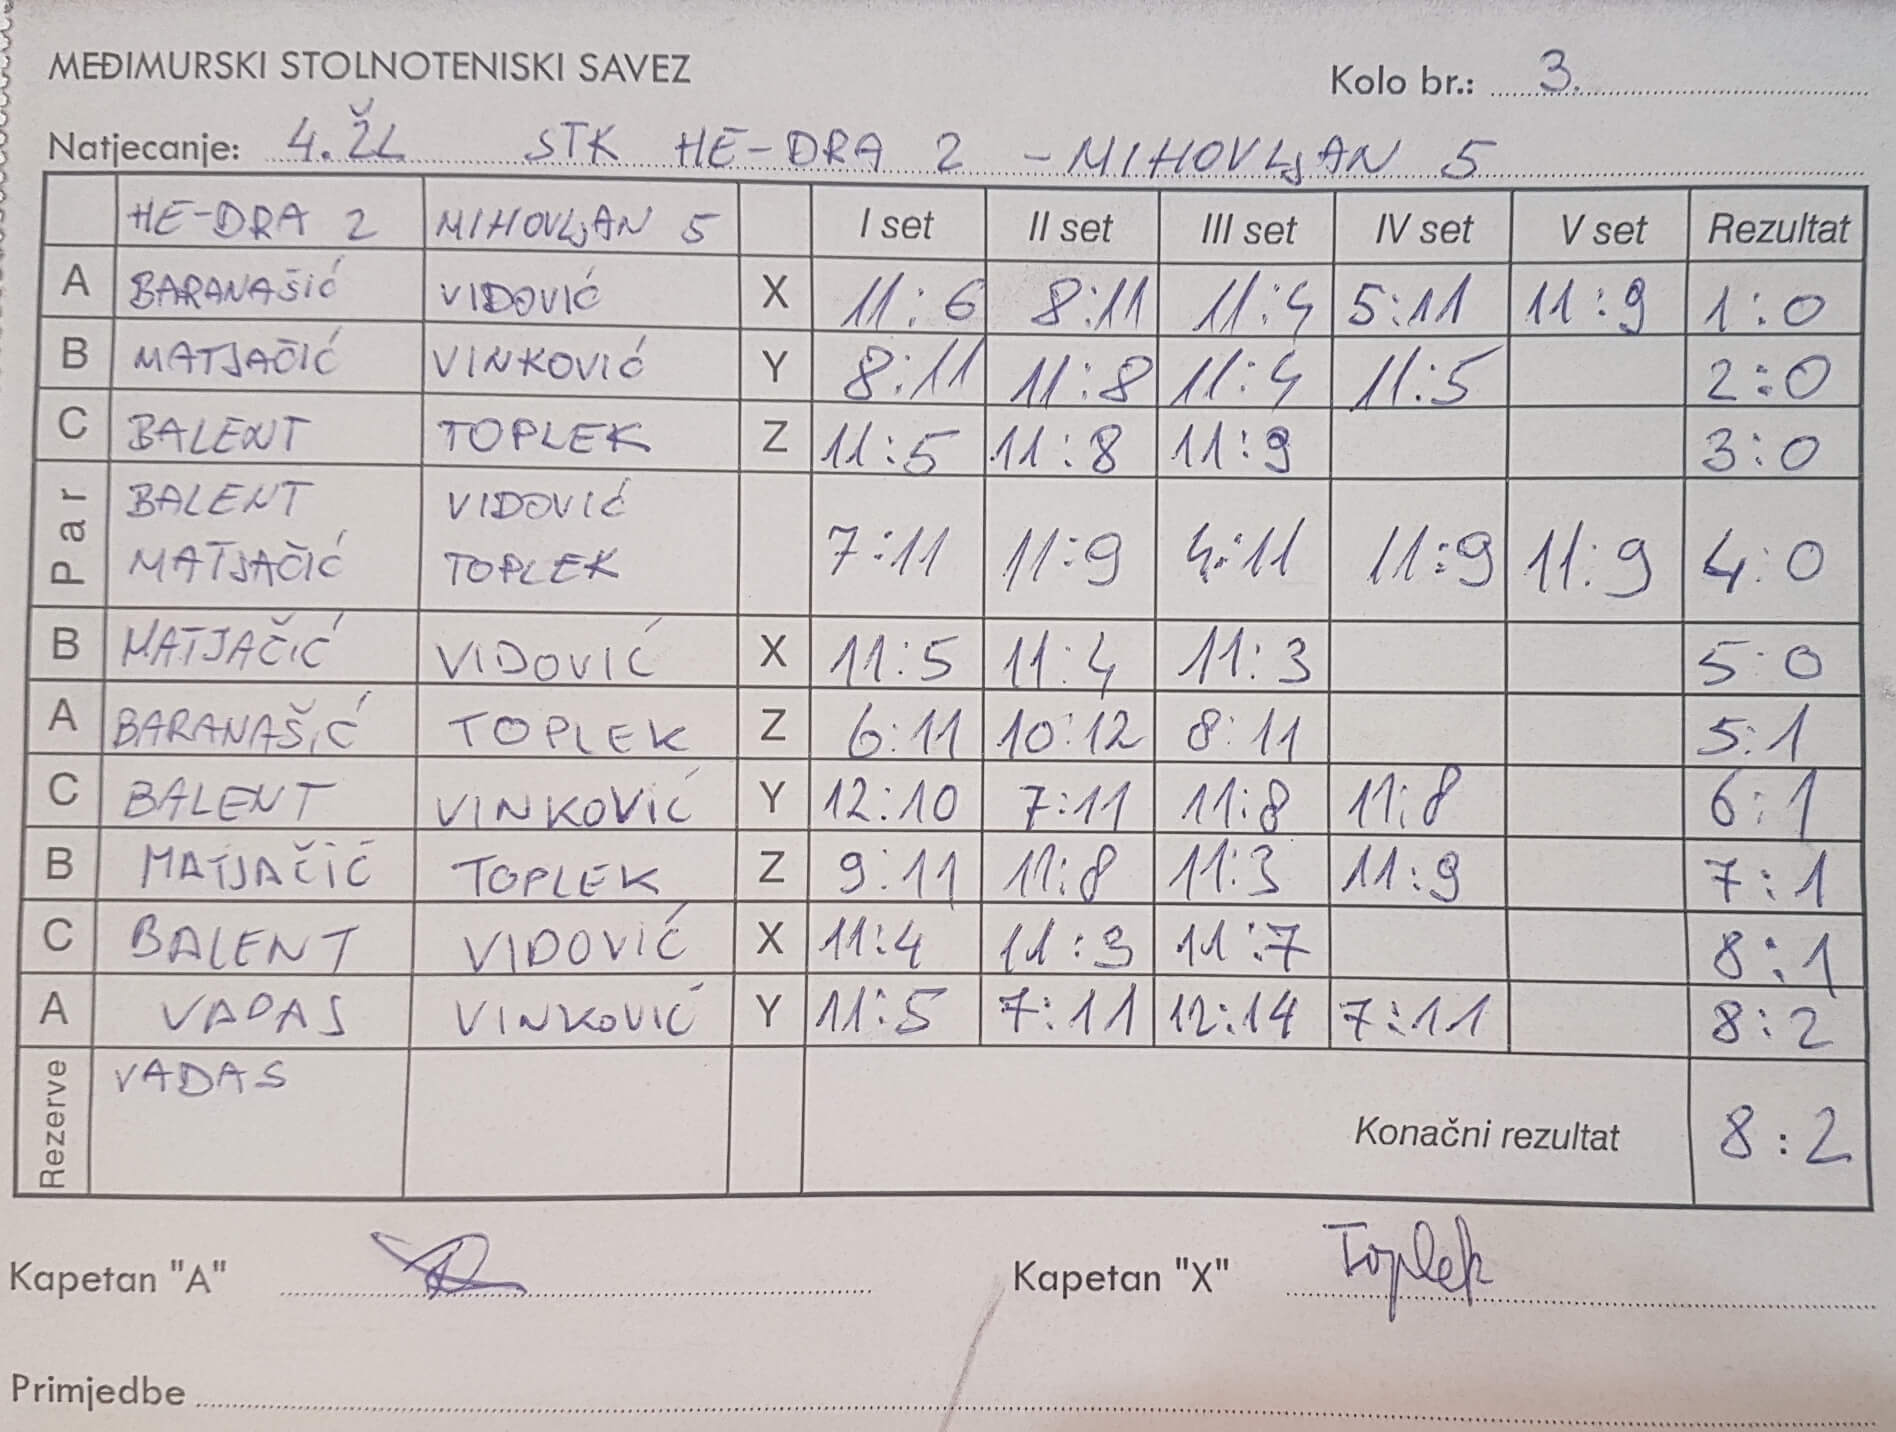 MEĐIMURSKI STOLNOTENISKI SAVEZ
Kolo br.: 3.
Natjecanje: 4. ŽL STK HE-DRA 2 - MIHOVLJAN 5
HE-DRA 2 MIHOVLJAN 5 I set II set III set IV set V set Rezultat
A BARANAŠIĆ VIDOVIĆ X 11:6 8:11 11:4 5:11 11:9 1:0
B MATJAČIĆ VINKOVIĆ Y 8:11 11:8 11:4 11:5 2:0
C BALENT TOPLEK Z 11:5 11:8 11:9 3:0
Par BALENT VIDOVIĆ
MATJAČIĆ TOPLEK 7:11 11:9 4:11 11:9 11:9 4:0
B MATJAČIĆ VIDOVIĆ X 11:5 11:4 11:3 5:0
A BARANAŠIĆ TOPLEK Z 6:11 10:12 8:11 5:1
C BALENT VINKOVIĆ Y 12:10 7:11 11:8 11:8 6:1
B MATJAČIĆ TOPLEK Z 9:11 11:8 11:3 11:9 7:1
C BALENT VIDOVIĆ X 11:4 11:3 11:7 8:1
A VADAS VINKOVIĆ Y 11:5 7:11 12:14 7:11 8:2
Rezerve VADAS
Konačni rezultat 8:2
Kapetan "A" Kapetan "X" Toplek
Primjedbe